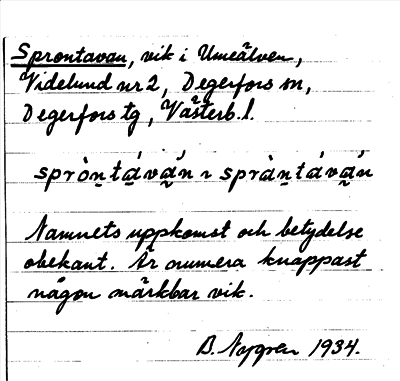 Sprontavan, vik i Umeälven,
Videlund nr 2, Degerfors sn,
Degerfors tg, Västerb. l.
spròn̠tá̠vá̠n ~ spràn̠táva̠n
Namnets uppkomst och betydelse
obekant. Är numera knappast
någon märkbar vik.
B. Nygren 1934.